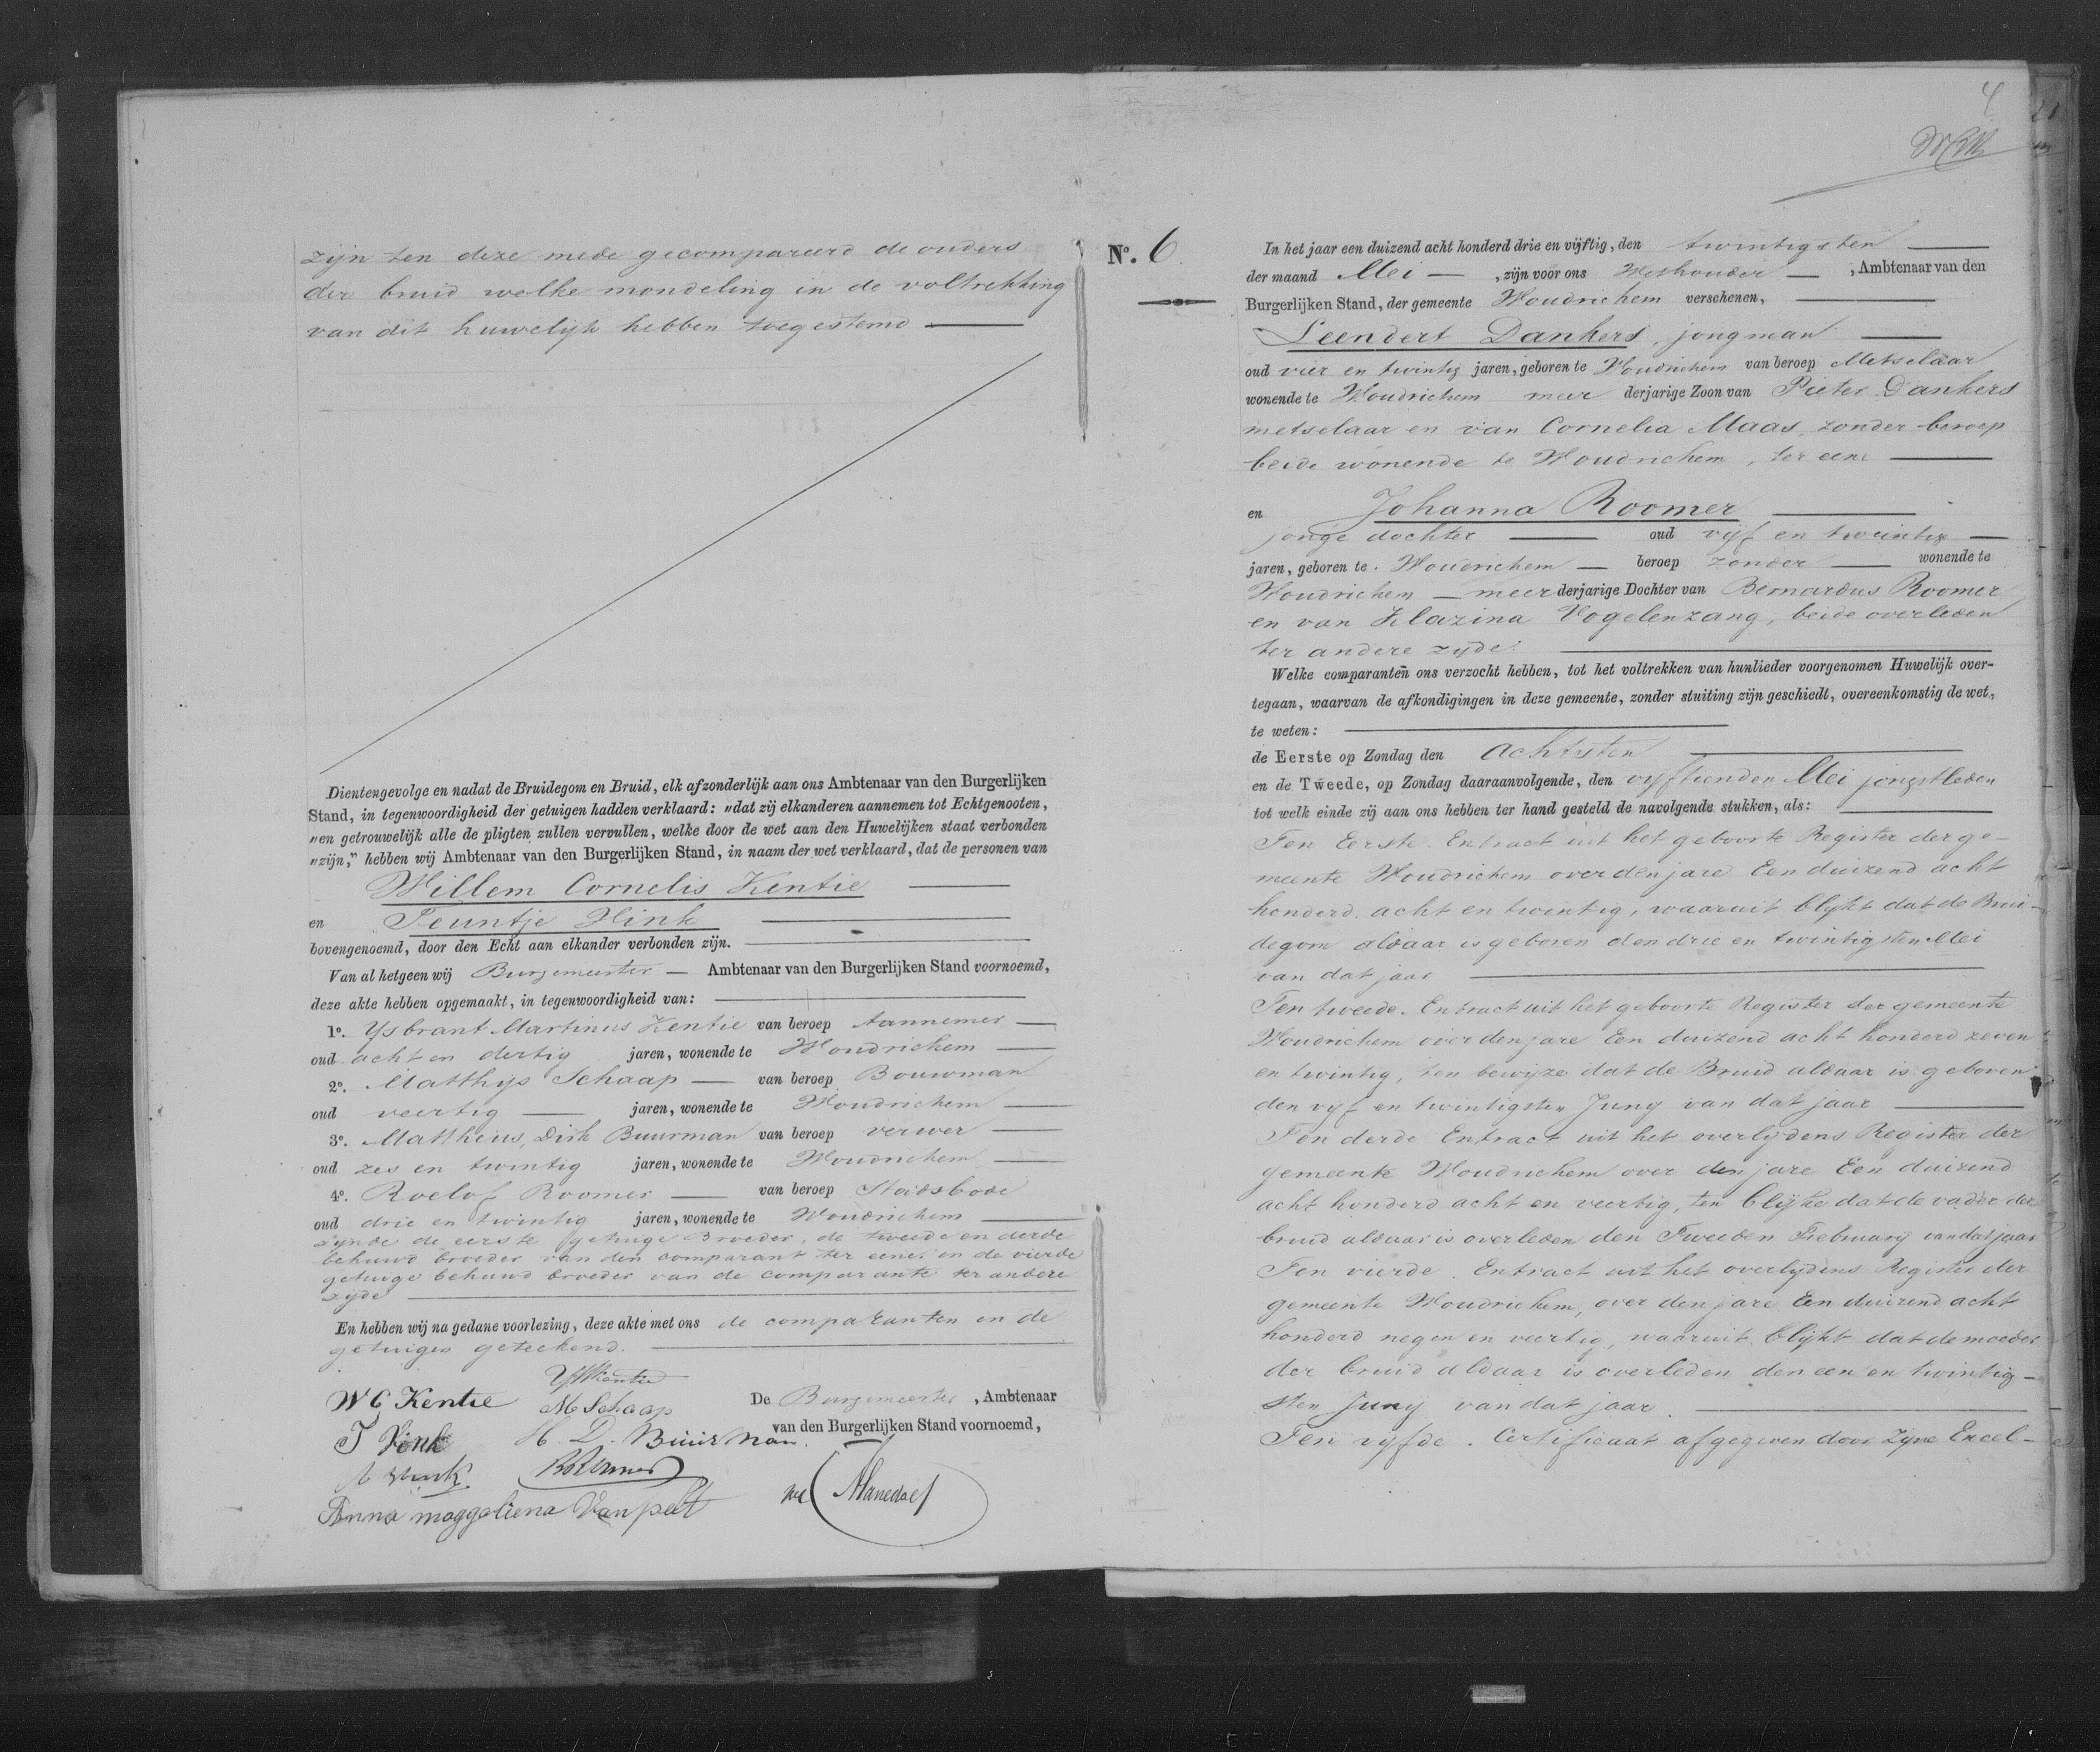 zijn ten deze mede gecompareerd de ouders
der bruid welke mondeling in de voltrekking
van dit huwelijk hebben toegestemd
Dientengevolge en nadat de Bruidegom en Bruid, elk afzonderlijk aan ons Ambtenaar van den Burgerlijken
Stand, in tegenwoordigheid der getuigen hadden verklaard: „dat zij elkanderen aannemen tot Echtgenooten,
„en getrouwelijk alle de pligten zullen vervullen, welke door de wet aan den Huwelijken staat verbonden
„zijn,” hebben wij Ambtenaar van den Burgerlijken Stand, in naam der wet verklaard, dat de personen van
Willem Cornelis Kentie
en Teuntje Vink
bovengenoemd, door den Echt aan elkander verbonden zijn.
Van al hetgeen wij Burgemeester Ambtenaar van den Burgerlijken Stand voornoemd,
deze akte hebben opgemaakt, in tegenwoordigheid van:
1º. Ysbrant Martinus Kentie van beroep Aannemer
oud acht en dertig jaren, wonende te Woudrichem
2º. Matthijs Schaap van beroep Bouwman
oud veertig jaren, wonende te Woudrichem
3º. Mattheus, Dirk Buurman van beroep verwer
oud zes en twintig jaren, wonende te Woudrichem
4º. Roelof Roomer van beroep Stadsbode
oud drie en twintig jaren, wonende te Woudrichem
zijnde de eerste getuige Broeder, de tweede en derde
behuwd broeder van den comparant ter eener en de vierde
getuige behuwd broeder van de comparante ter andere
zijde
En hebben wij na gedane voorlezing, deze akte met ons de comparanten en de
getuigen geteekend.
YMKentie
W C Kentie M Schaap De Burgemeester, Ambtenaar
T Vink M. D. Buurman. van den Burgerlijken Stand voornoemd,
Vink RRoomer
Anna maggeliena Van pelt
4
Nº. 6
In het jaar een duizend acht honderd drie en vijftig, den twintigsten
der maand Mei, zijn voor ons Wethouder, Ambtenaar van den
Burgerlijken Stand, der gemeente Woudrichem verschenen,
Leendert Dankers, jongman
oud vier en twintig jaren, geboren te Woudrichem van beroep Metselaar
wonende te Woudrichem meer derjarige Zoon van Pieter Dankers
metselaar en van Cornelia Maas, zonder beroep
beide wonende te Woudrichem, ter eene
en Johanna Roomer
jonge dochter oud vijf en twintig
jaren, geboren te Woudrichem beroep zonder wonende te
Woudrichem meer derjarige Dochter van Bernardus Roomer
en van Klazina Vogelenzang, beide overleden
ter andere zijde.
Welke comparanten ons verzocht hebben, tot het voltrekken van hunlieder voorgenomen Huwelijk over-
tegaan, waarvan de afkondigingen in deze gemeente, zonder stuiting zijn geschiedt, overeenkomstig de wet,
te weten:
de Eerste op Zondag den achtsten
en de Tweede, op Zondag daaraanvolgende, den vijftienden Mei jongstleden
tot welk einde zij aan ons hebben ter hand gesteld de navolgende stukken, als:
Ten Eerste. Extract uit het geboorte Register der ge-
meente Woudrichem over den jare Een duizend acht
honderd acht en twintig, waaruit blijkt dat de Brui-
degom aldaar is geboren den drie en twintigsten Mei
van dat jaar
Ten tweede. Extract uit het geboorte Register der gemeente
Woudrichem over den jare Een duizend acht honderd zeven
en twintig, ten bewijze dat de Bruid aldaar is geboren
den vijf en twintigsten Juny van dat jaar
Ten derde Extract uit het overlijdens Register der
gemeente Woudrichem over den jare Een duizend
acht honderd acht en veertig, ten blijke dat de vader der
bruid aldaar is overleden den Tweeden Februarij van dat jaar
Ten vierde. Extract uit het overlijdens Register der
gemeente Woudrichem, over den jare Een duizend acht
honderd negen en veertig, waaruit blijkt dat de moeder
der bruid aldaar is overleden den een en twintig-
sten Juny van dat jaar.
Ten vijfde. Certificaat afgegeven door Zijne Excel-